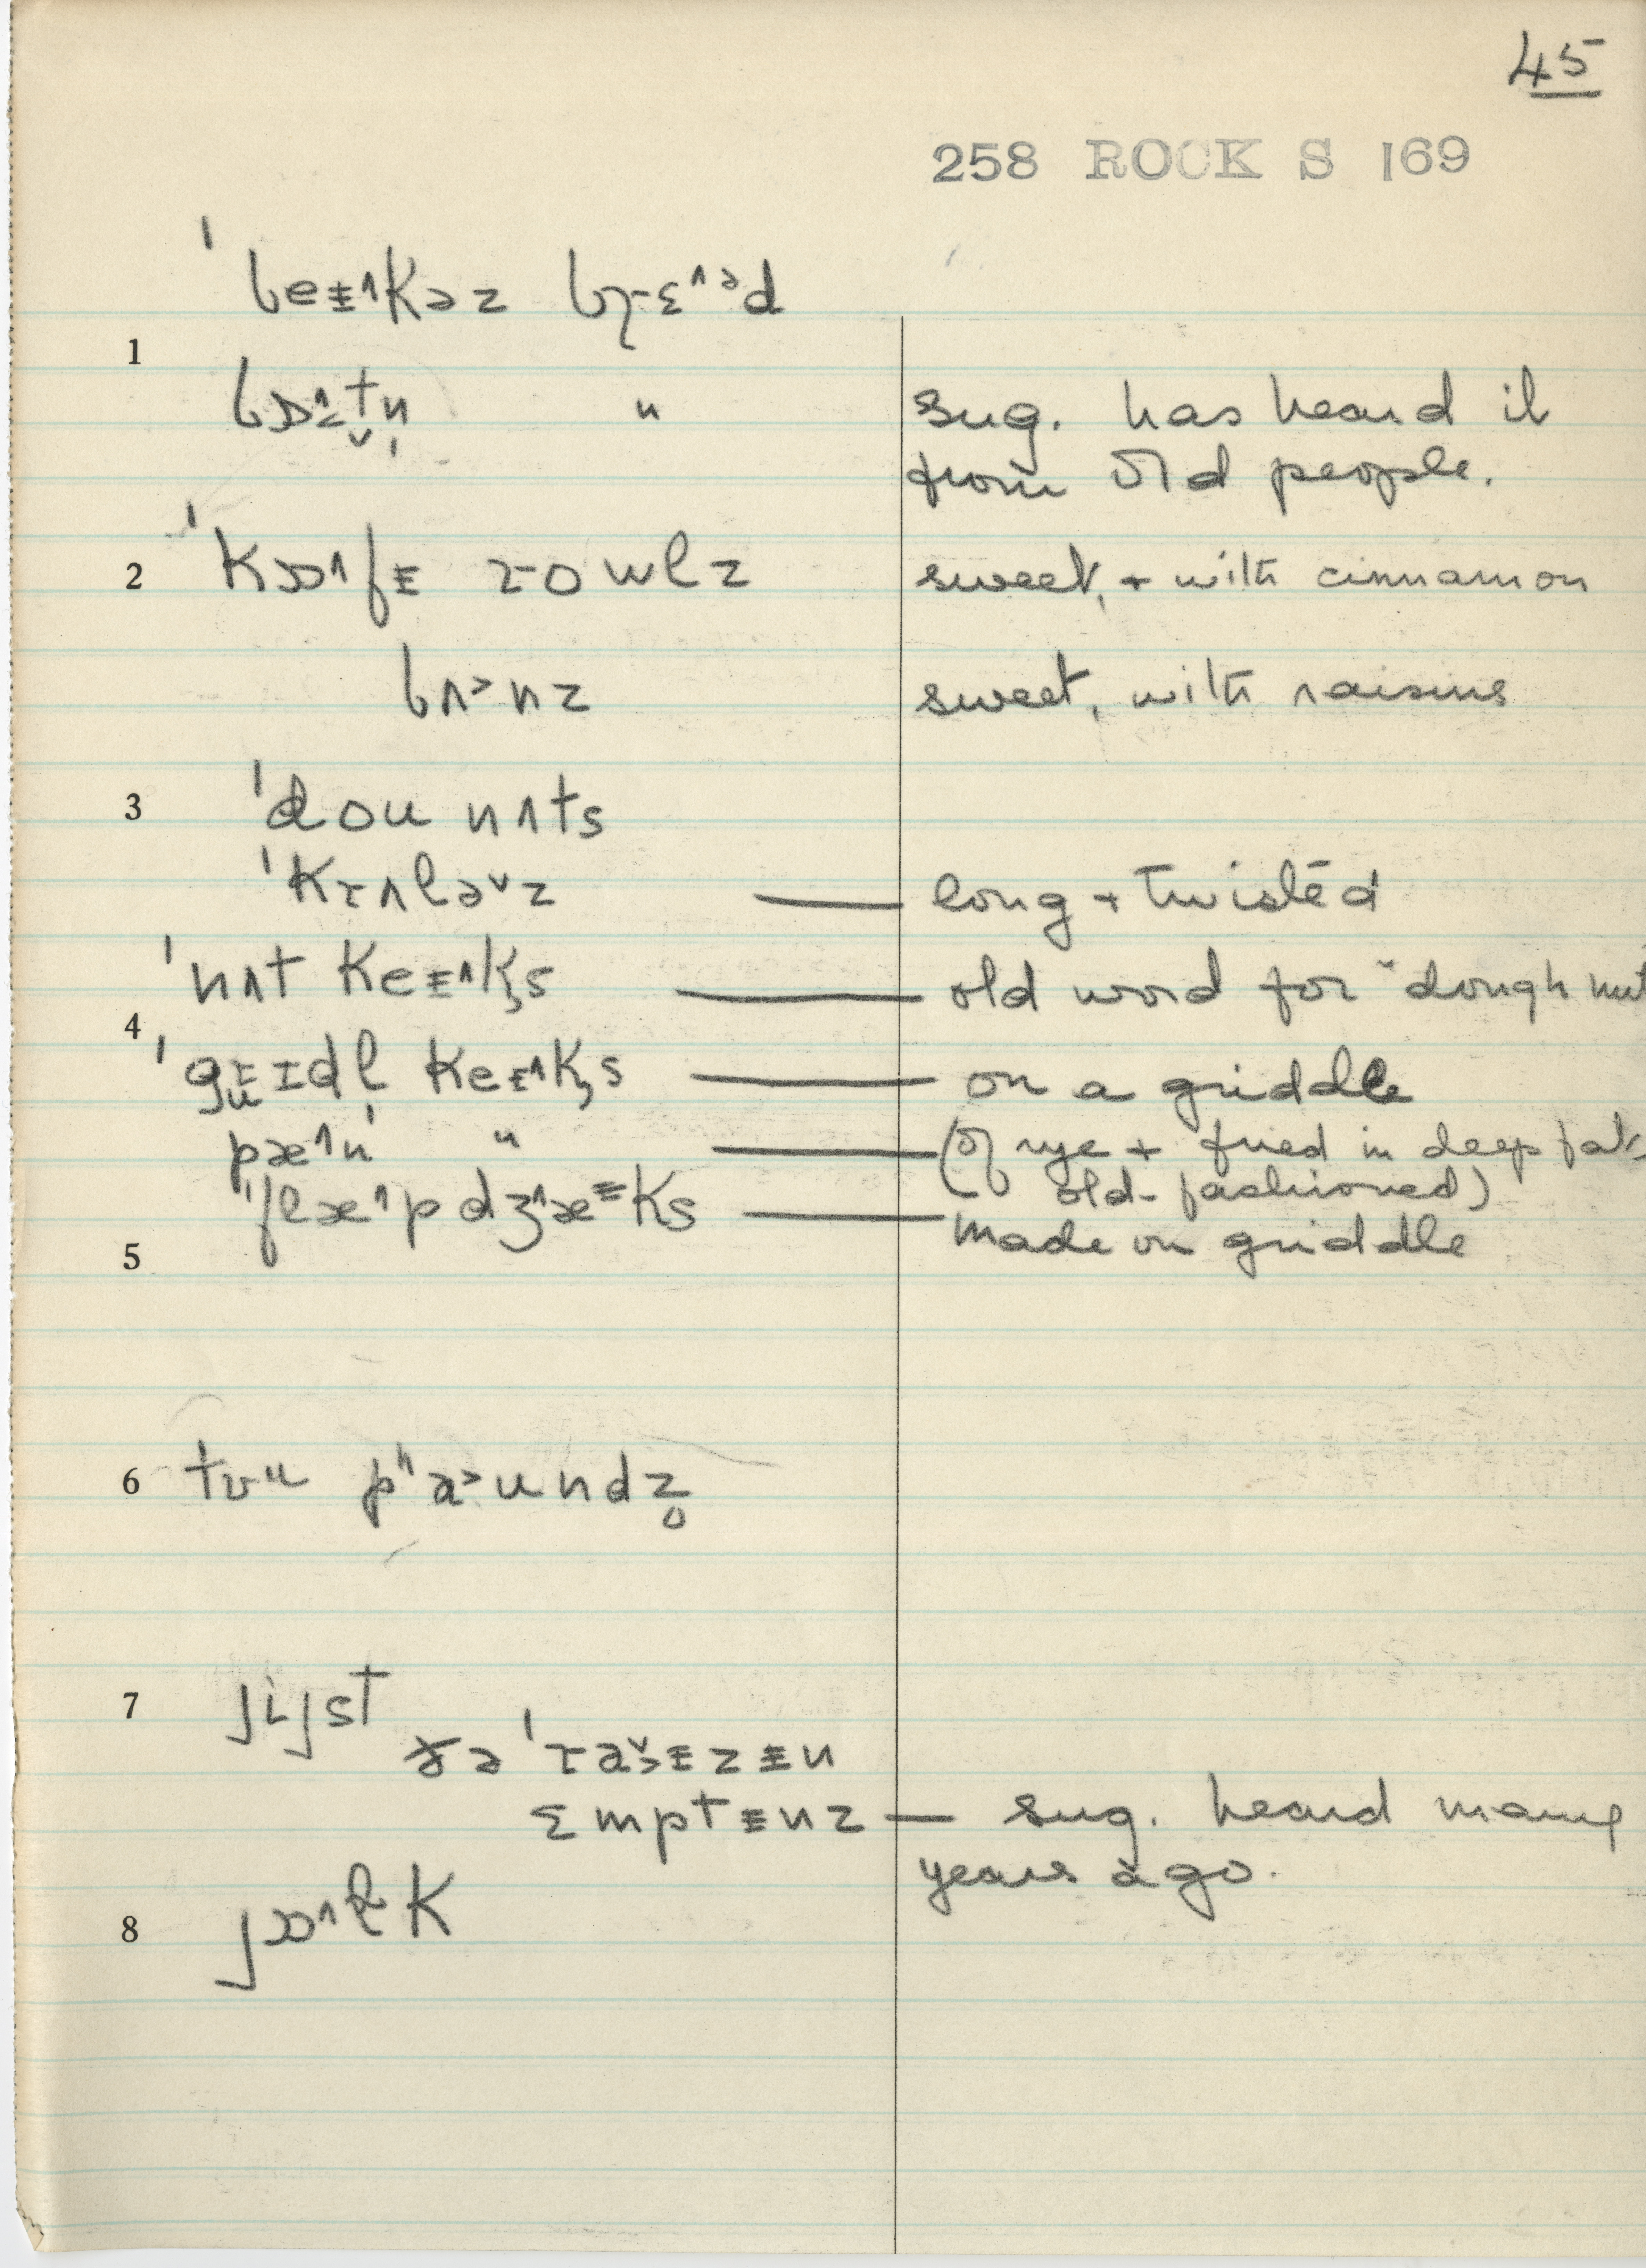 45
258 ROCK S 169
ˈbeᵻ˄kəz bɹɛ˄ᵊd
1
〃 sug. has heard it
from old people.
2 ˈkɒ˄fᵻ roʊlz sweet, + with cinnamon
bʌ˃nz sweet, with raisins
3 ˈdou nʌts
ˈkrʌləˇz — long + twisted
ˈnʌt keᵻ˄ks — old word for "doughnut
4
keᵻ˄ks — on a griddle
pæ˄n 〃 — (of rye + fried in deep fat,
old-fashioned)
ˈflæ˄pdʒæks — made on griddle
5
6 pʰa˃undz̥
7 jijst
ðə ˈraɪzᵻn
ɛmptᵻnz — sug. heard many
years ago.
8 jɒ˄lk